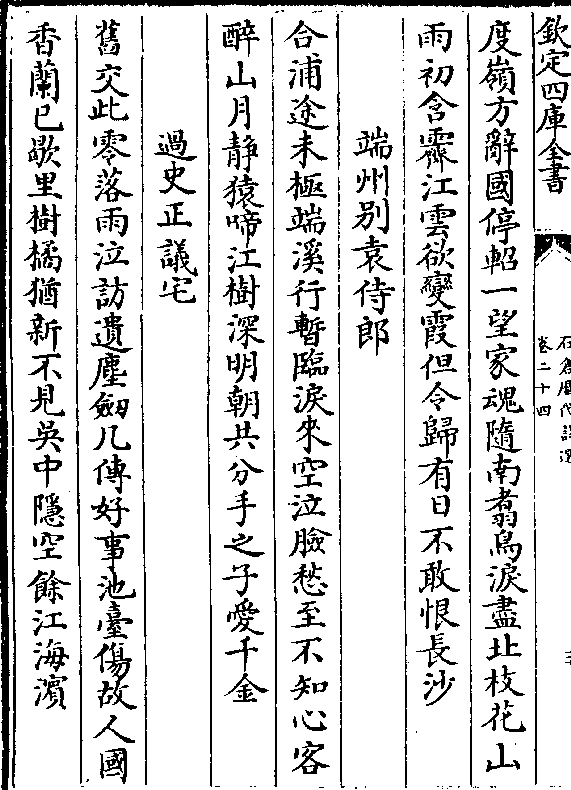 欽定四庫全書
卷二十四
度嶺方辭國停軺一望家魂隨南翥鳥淚盡北枝花山
雨初含霽江雲欲變霞但令歸有日不敢恨長沙
端州别袁侍郎
合浦途未極端溪行暫臨淚來空泣臉愁至不知心客
醉山月静猿啼江樹深明朝共分手之子愛千金
過史正議宅
舊交此零落雨泣訪遺塵劔几傳好事池臺傷故人國
香蘭已歇里樹橘猶新不見吳中隱空餘江海濱